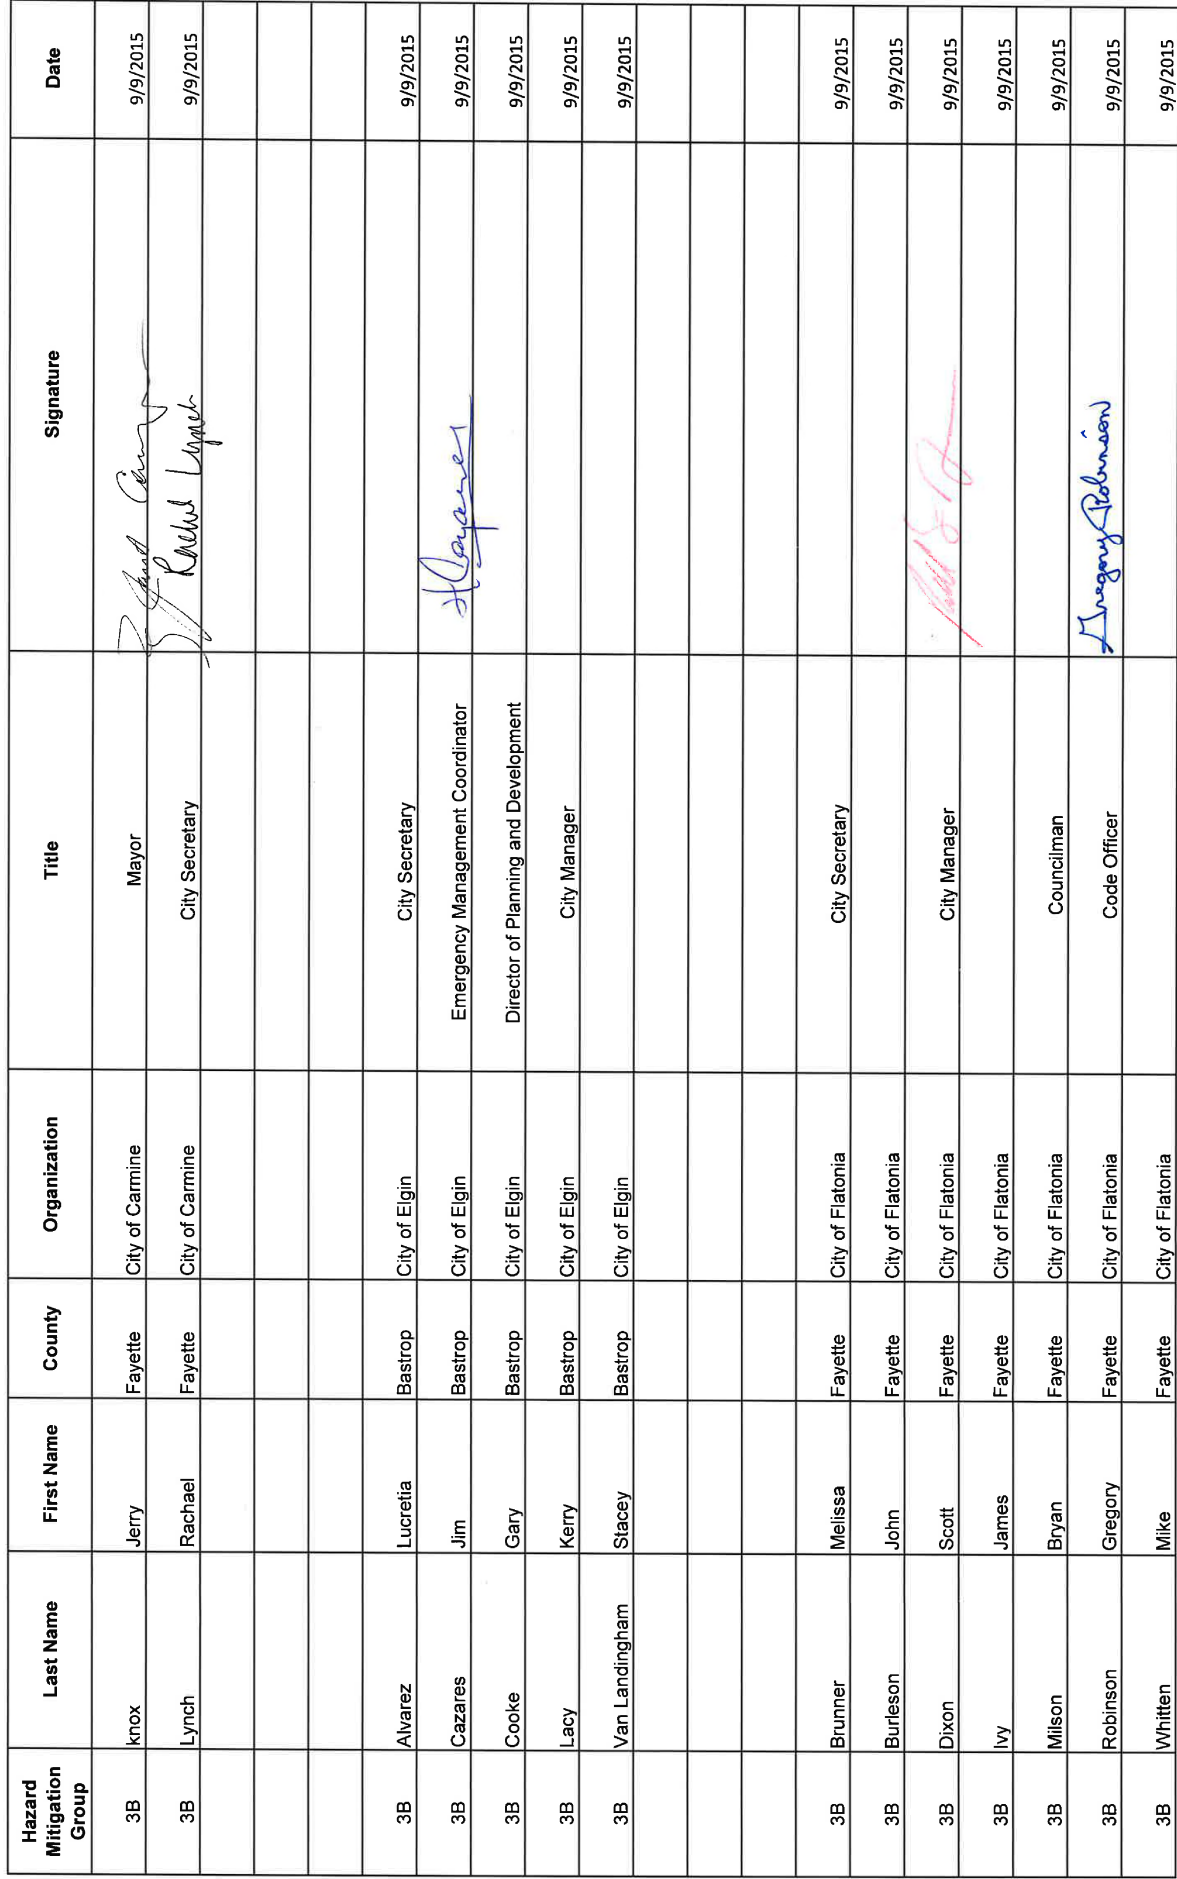 Hazard Mitigation Group Last Name First Name County Organization Title Signature Date
3B knox Jerry Fayette City of Carmine Mayor 9/9/2015
3B Lynch Rachael Fayette City of Carmine City Secretary Rachael Lynch 9/9/2015
3B Alvarez Lucretia Bastrop City of Elgin City Secretary 9/9/2015
3B Cazares Jim Bastrop City of Elgin Emergency Management Coordinator 9/9/2015
3B Cooke Gary Bastrop City of Elgin Director of Planning and Development 9/9/2015
3B Lacy Kerry Bastrop City of Elgin City Manager 9/9/2015
3B Van Landingham Stacey Bastrop City of Elgin 9/9/2015
3B Brunner Melissa Fayette City of Flatonia City Secretary 9/9/2015
3B Burleson John Fayette City of Flatonia 9/9/2015
3B Dixon Scott Fayette City of Flatonia City Manager 9/9/2015
3B Ivy James Fayette City of Flatonia 9/9/2015
3B Milson Bryan Fayette City of Flatonia Councilman 9/9/2015
3B Robinson Gregory Fayette City of Flatonia Code Officer Gregory Robinson 9/9/2015
3B Whitten Mike Fayette City of Flatonia 9/9/2015